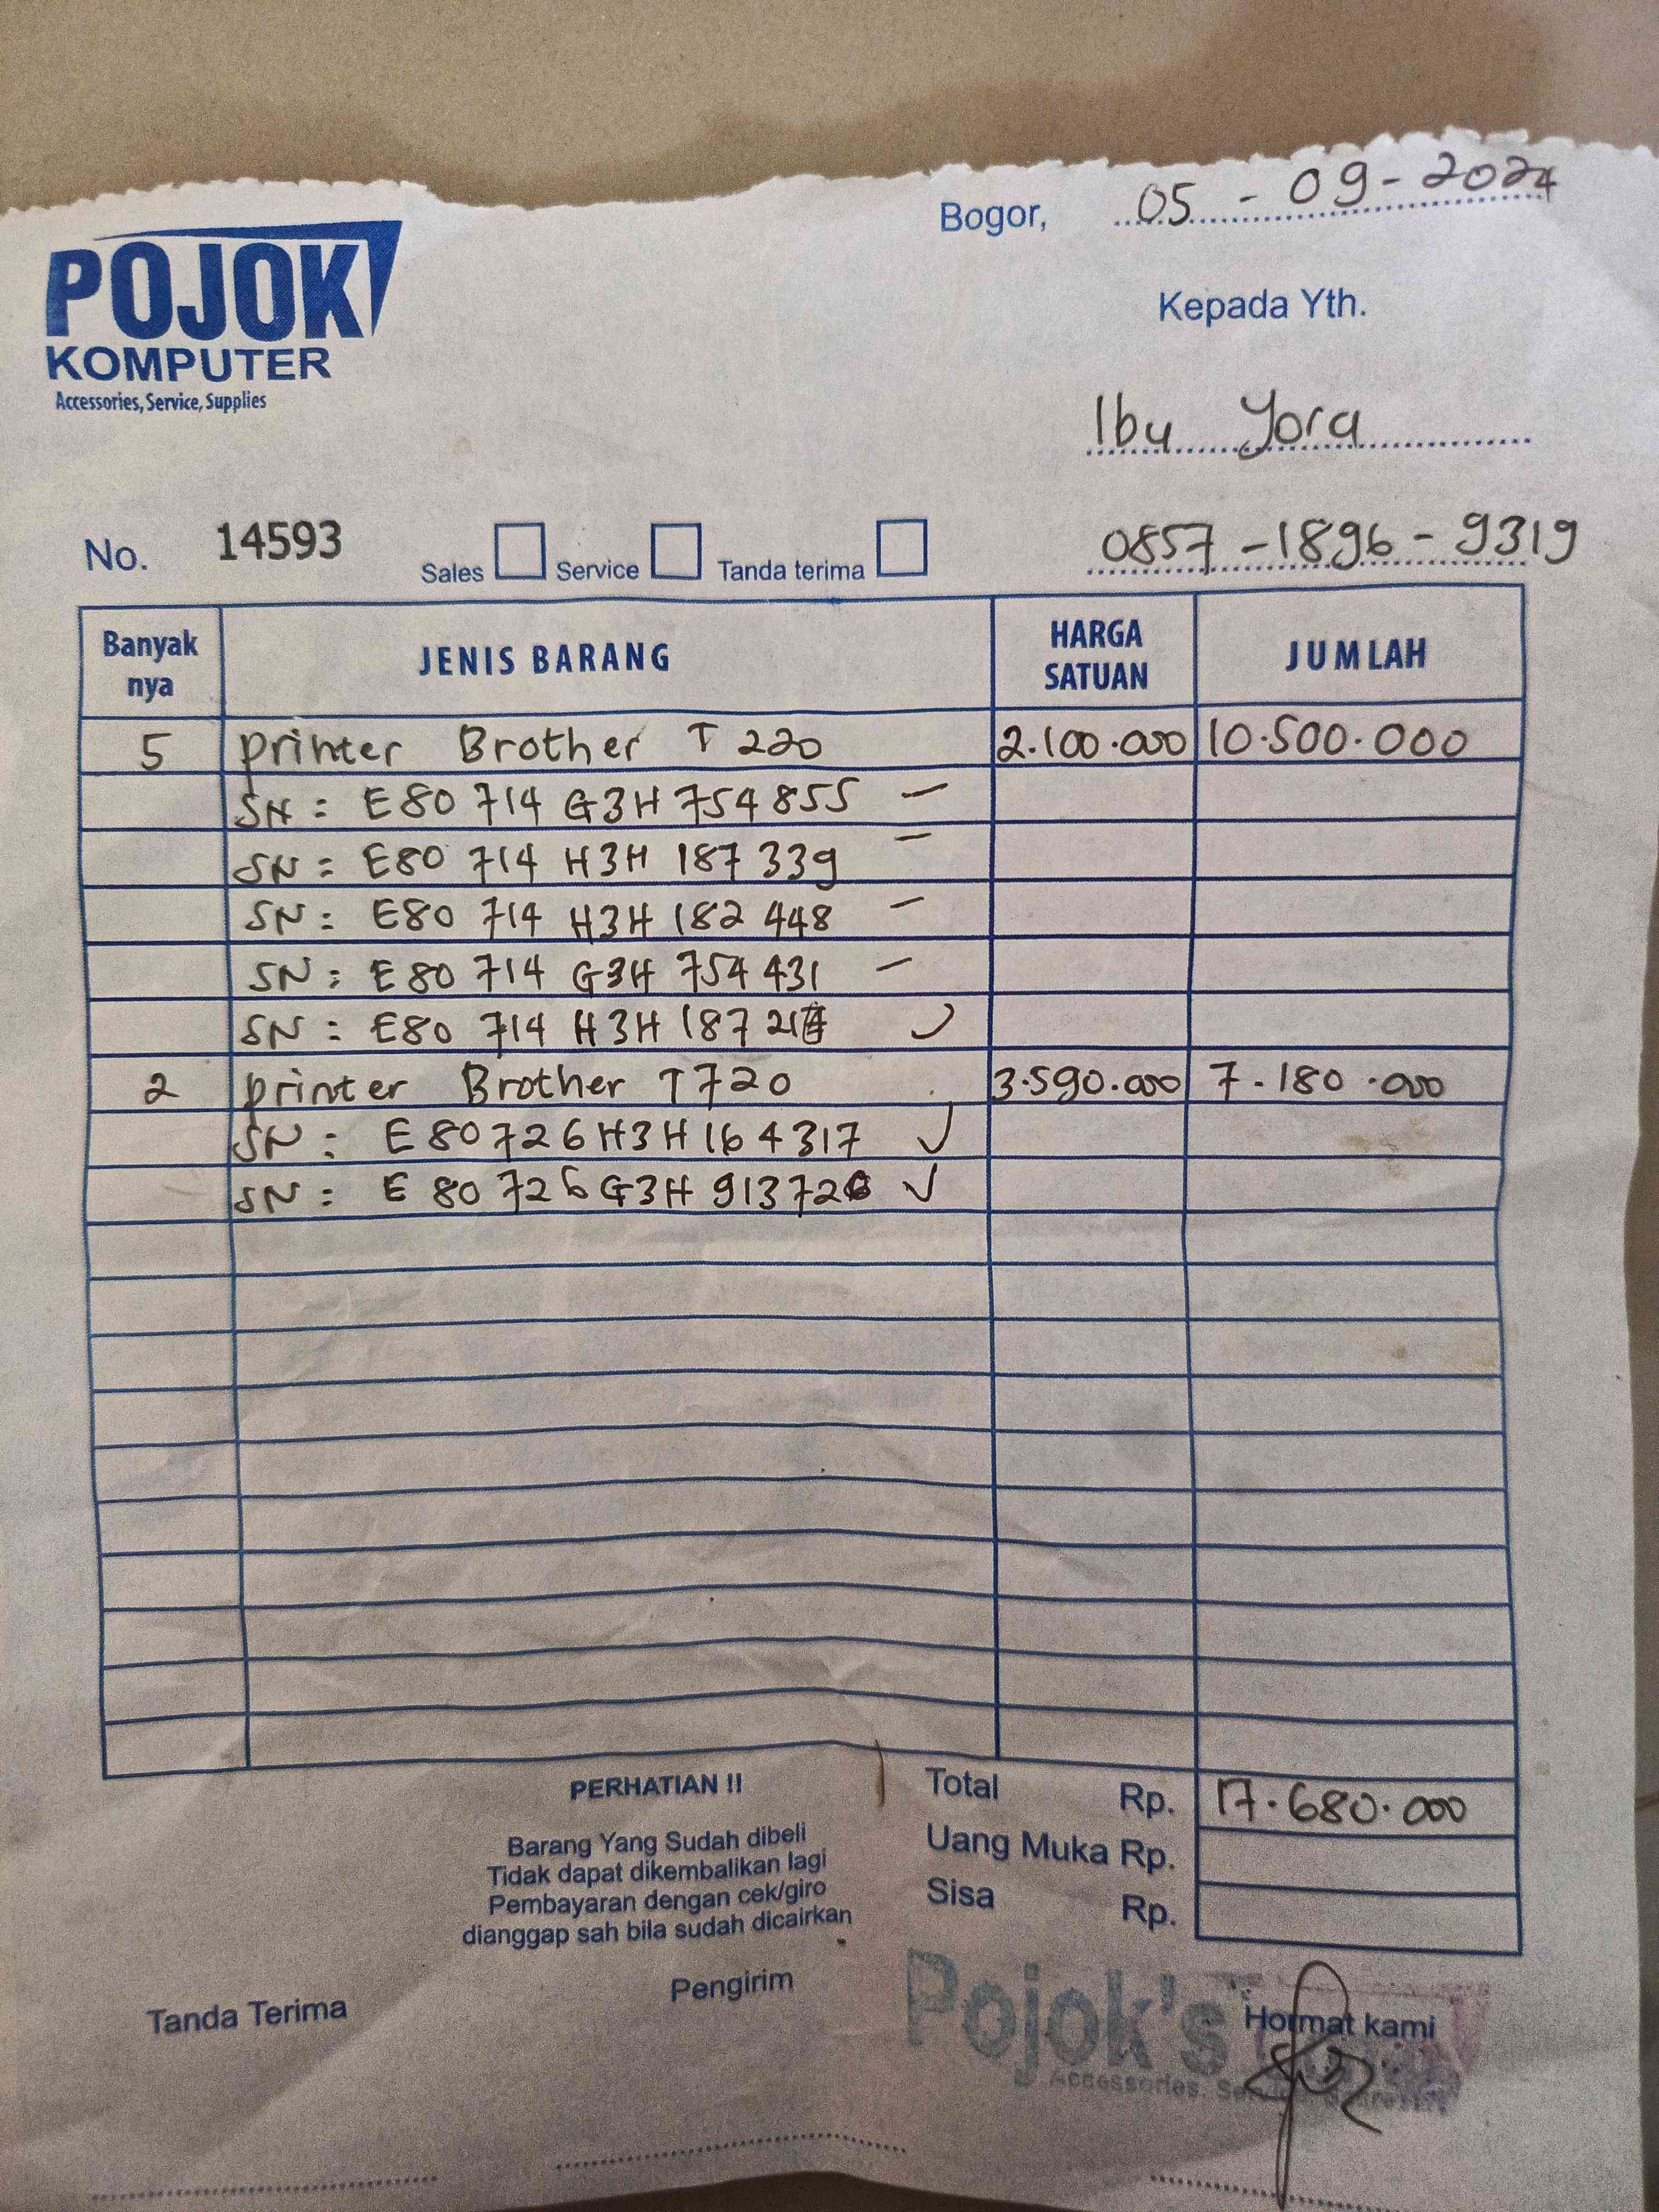 Bogor, 05 - 09 - 2024
POJOK
KOMPUTER
Accessories, Service, Supplies
Kepada Yth.
Ibu Yora
0857 - 1896 - 9319
No. 14593 Sales Service Tanda terima
Banyak nya JENIS BARANG HARGA SATUAN JUMLAH
5 printer Brother T 220 2.100.000 10.500.000
SN = E80 714 G3H 754 855 –
SN = E80 714 H3H 187 339 –
SN = E80 714 H3H 182 448 –
SN = E80 714 G3H 754 431 –
SN = E80 714 H3H 187
2 printer Brother T720 3.590.000 7.180.000
SN = E80726H3H164317 ✓
SN = E80726G3H913726 ✓
PERHATIAN !!
Barang Yang Sudah dibeli
Tidak dapat dikembalikan lagi
Pembayaran dengan cek/giro
dianggap sah bila sudah dicairkan
Total Rp. 17.680.000
Uang Muka Rp.
Sisa Rp.
Tanda Terima
Pengirim
Hormat kami
Pojok's
Accessories.